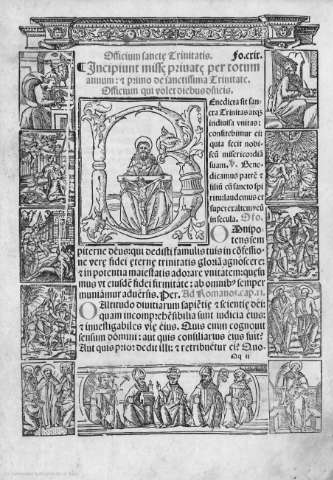 Officium sanctę Trinitatis. Fo.cxix.
¶Incipiunt missę priuatę per totum
annum: & primo de sanctissima Trinitate.
Officium qui volet diebus
Enedicta sit san-
cta Trinitas atqȝ
indiuisa vnitas:
confitebimur ei:
quia fecit nobis
cũ misericordiã
suam. ꝟ. Bene-
dicamus patrẽ &
filiũ cũ sancto spi
ritu: laudemus et
superexaltemꝰ eũ
in secula. Oro.
OMnipo-
tens sem
piterne deus: qui dedisti famulis tuis in cõfessio-
ne verę fidei ęternę trinitatis gloriã agnoscere: &
in potentia maiestatis adorare vnitatem: quęsu
mus vt eiusdẽ fidei firmitate: ab omnibꝰ semper
muniamur aduersis. Per. Ad Romanos. cap. xi.
O Altitudo diuitiarum sapiẽtię & scientię dei:
quam incomprehẽsibilia sunt iudicia eius:
& inuestigabiles vię eius. Quis enim cognouit
sensum domini: aut quis consiliarius eius fuit?
Aut quis prior dedit illi: & retribuetur ei? Quo-
Qq ii